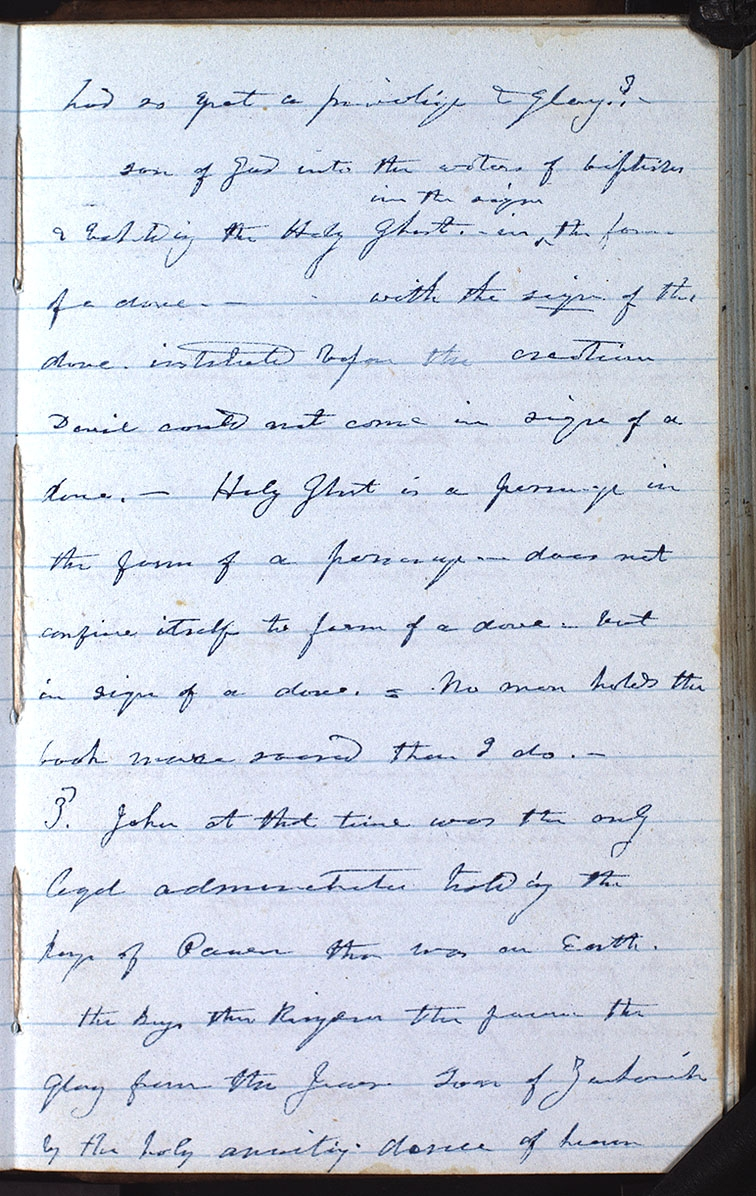 had so great a privilige & glory.?—
son of God into the waters of baptism
in the sign
& beholding the Holy Ghost.— in the form
of a dove.— with the sign of the
dove. instituted before the creation
Devil could not come in sign of a
dove.— Holy Ghost is a personage in
the form of a personage— does not
confine itself to form of a dove— but
in sign of a dove. = No man holds the
book more sacred than I do.—
3. John at that time was the only
legal administrator holding the
keys of Power there was on Earth.
the keys the Kingdom the power the
glory from the Jews Son of Zachariah
by the holy anointing decree of heaven